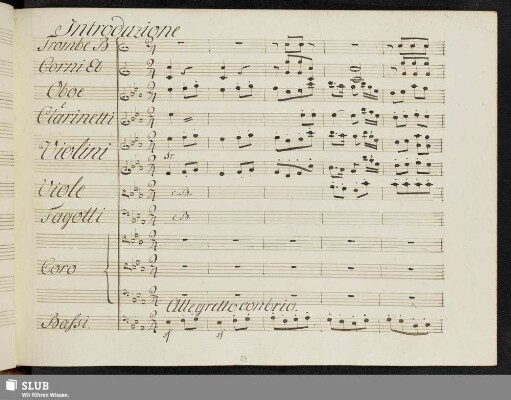 Introduzione
Trombe B
Corni Eb
Oboe
e
Clarinetti
Violini
Viole
c.B.
Fagotti
c.B.
Coro
Allegretto con brio.
Bassi.
sf
sf
SLUB
Wir führen Wissen.